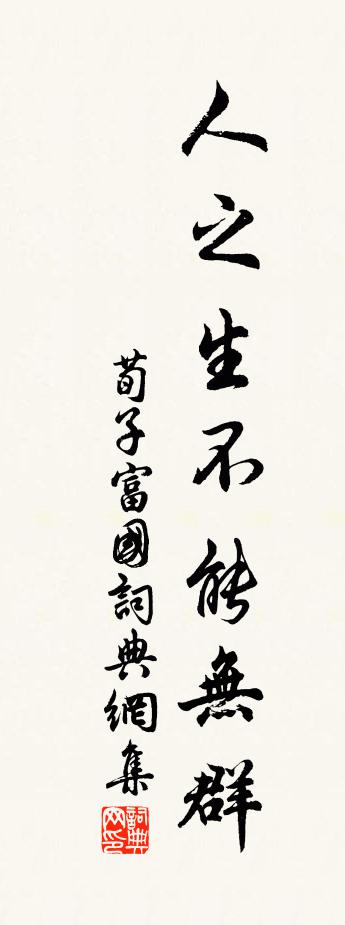 人之生不能無群
荀子富國詞典網集
詞典網印